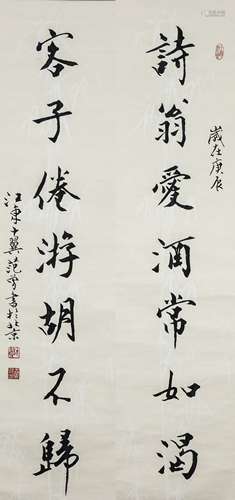 歲在庚辰
詩翁愛酒常如渴
客子倦游胡不歸
江東十翼范曾書於北京